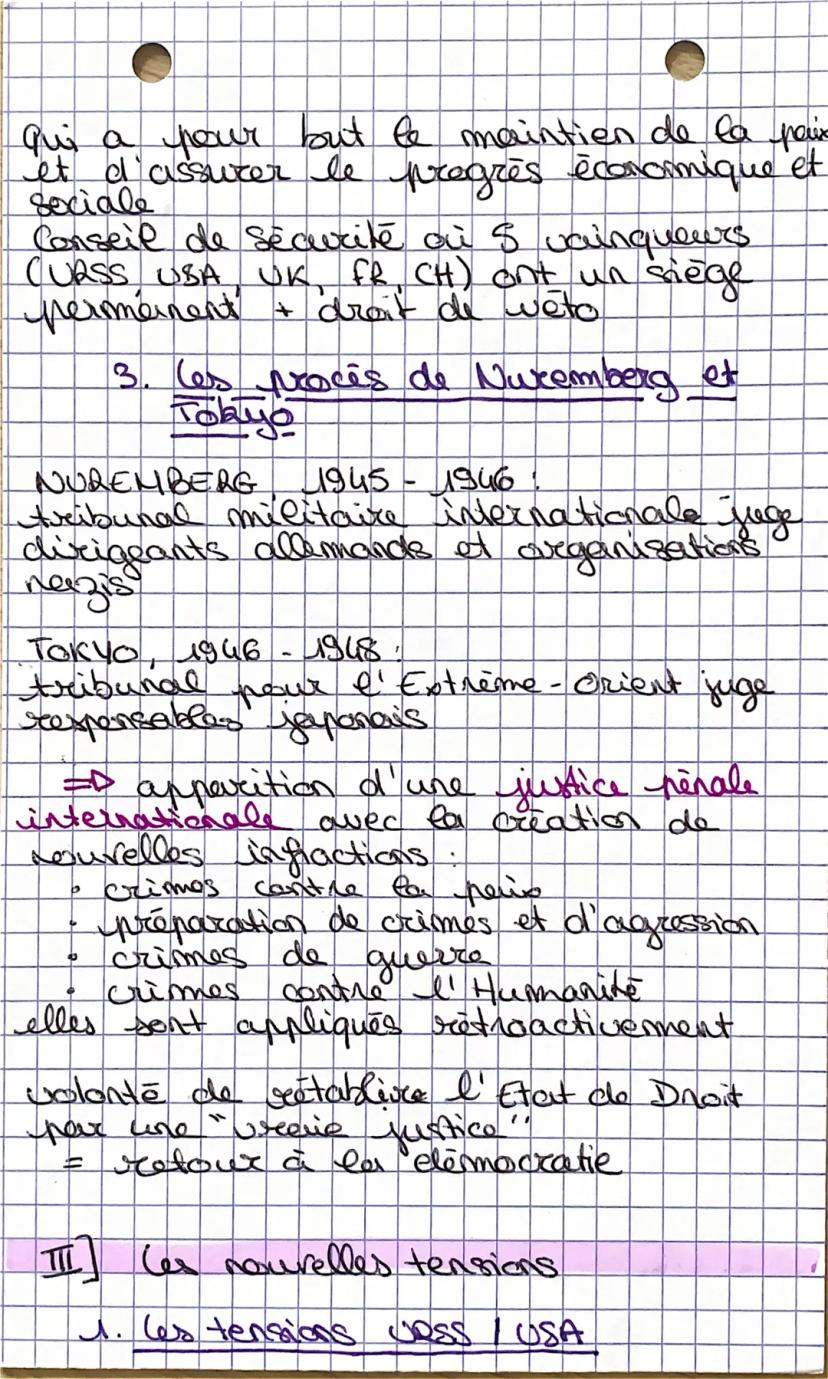 qui a pour but le maintien de la paix
et d'assurer le progrès économique et
sociale
Conseil de Sécurité où 5 vainqueurs
(URSS, USA, UK, FR, CH) ont un siège
permanent + droit de véto
3. Les procès de Nuremberg et
Tokyo
NUREMBERG, 1945 - 1946 :
tribunal militaire internationale juge
dirigeants allemands et organisations
nazis
TOKYO, 1946 - 1948 :
tribunal pour l'Extrême-Orient juge
responsables japonais
=> apparition d'une justice pénale
internationale avec la création de
nouvelles infractions :
• crimes contre la paix
• préparation de crimes et d'agression
• crimes de guerre
• crimes contre l'Humanité
elles sont appliqués rétroactivement
volonté de rétablire l'Etat de Droit
par une "vraie justice"
= retour à la démocratie
III] Les nouvelles tensions
1. Les tensions URSS / USA